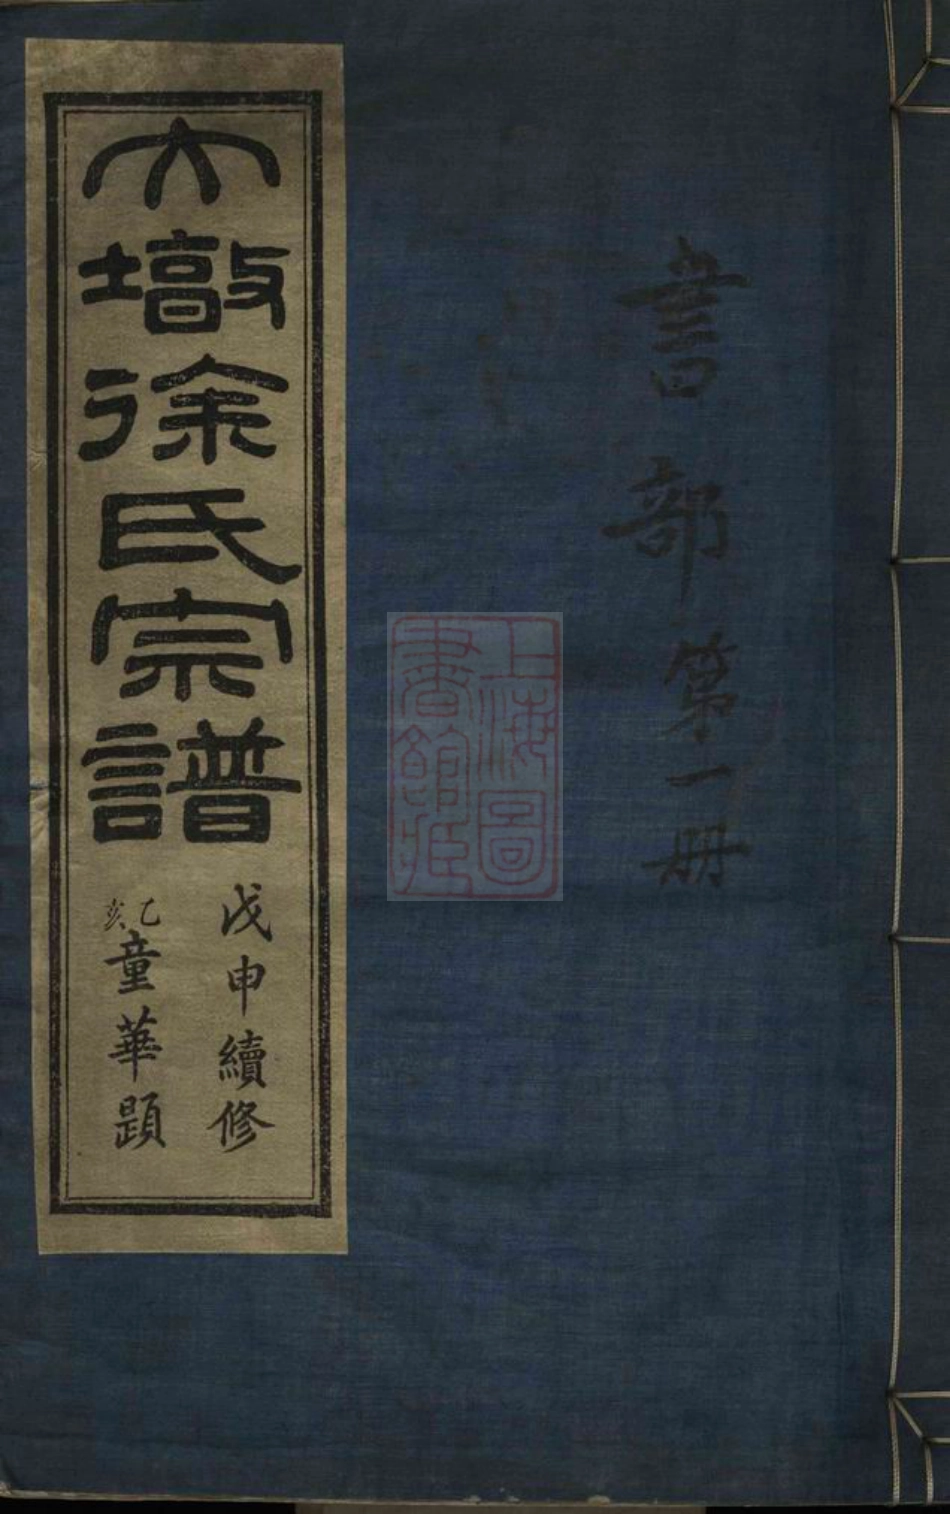 書部第一册
上海圖
書館藏
大墩徐氏宗譜
戊申續修
乙亥童華題